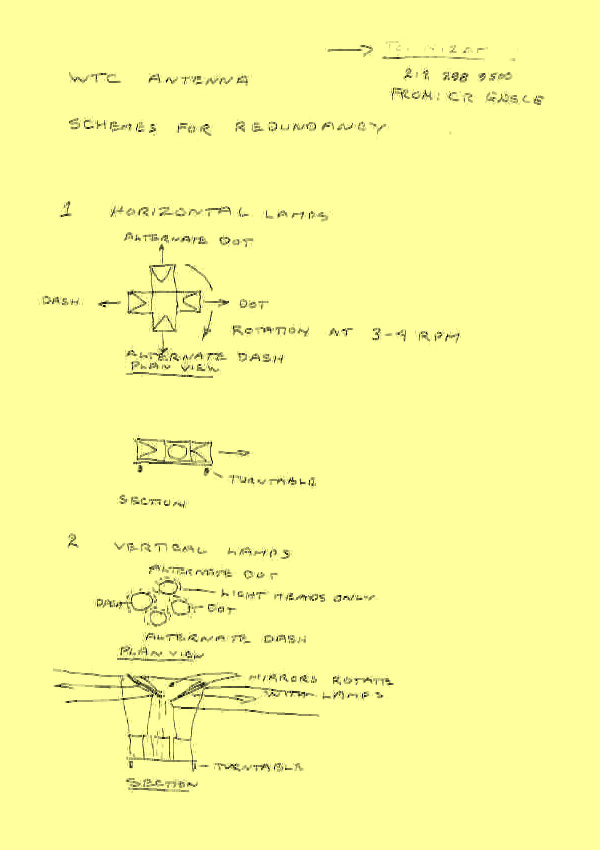 WTC ANTENNA
FROM: KR
SCHEMES FOR REDUNDANCY
1 HORIZONTAL LAMPS
ALTERNATE DOT
DASH
DOT
ROTATION AT 3-4 RPM
ALTERNATE DASH
PLAN VIEW
TURNTABLE
SECTION
2 VERTICAL LAMPS
ALTERNATE DOT
LIGHT HEADS ONLY
DASH
DOT
ALTERNATE DASH
PLAN VIEW
MIRRORS ROTATE
WITH LAMPS
TURNTABLE
SECTION